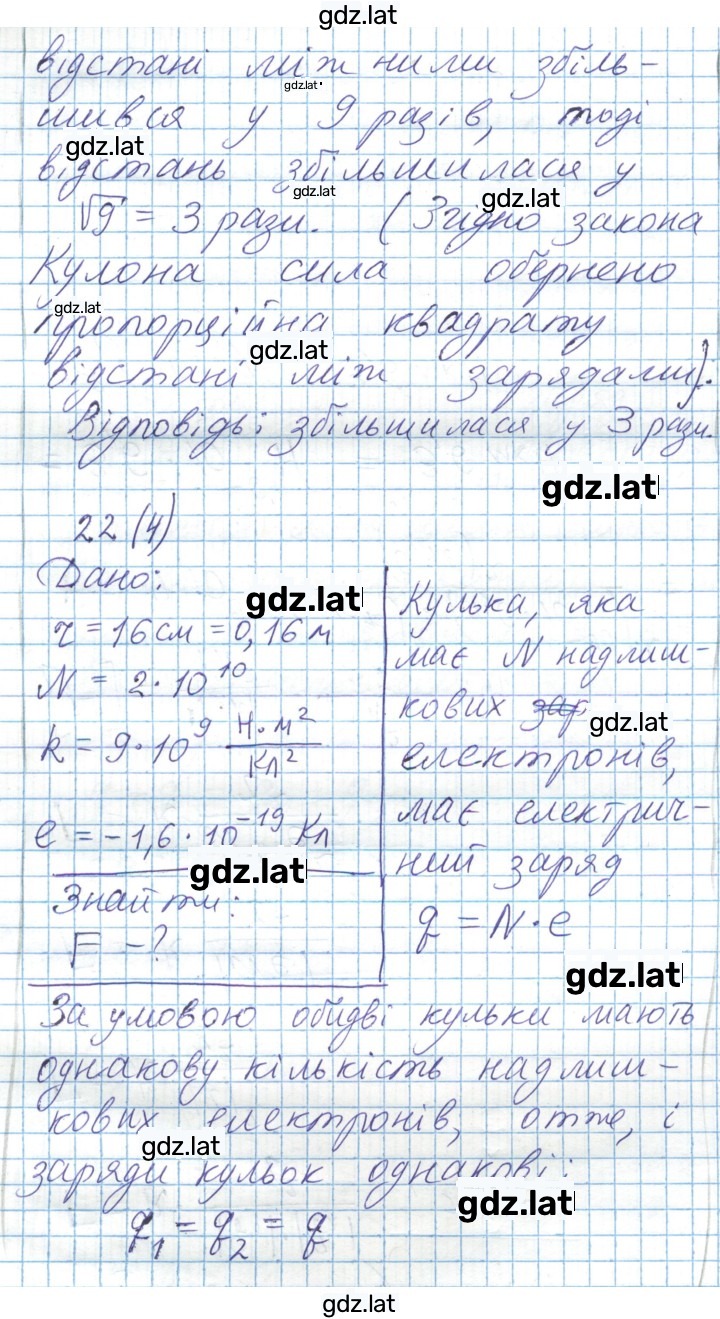 gdz.lat
відстані між ними збіль-
gdz.lat
шився у 9 разів, тоді
gdz.lat
відстань збільшилася у
gdz.lat
gdz.lat
√9 = 3 рази. (Згідно закона
Кулона сила обернено
gdz.lat
пропорційна квадрату
gdz.lat
відстані між зарядами).
Відповідь: збільшилася у 3 рази.
gdz.lat
22 (4)
Дано:
gdz.lat
r = 16 см = 0,16 м
N = 2·10^10
k = 9·10^9 Н·м²/Кл²
e = -1,6·10^-19 Кл
gdz.lat
Знайти:
F - ?
Кулька, яка
має N надлиш-
кових зар
gdz.lat
електронів,
має електрич-
ний заряд
q = N·e
gdz.lat
За умовою обидві кульки мають
однакову кількість надлиш-
кових електронів, отже, і
gdz.lat
заряди кульок однакові:
gdz.lat
q₁ = q₂ = q
gdz.lat